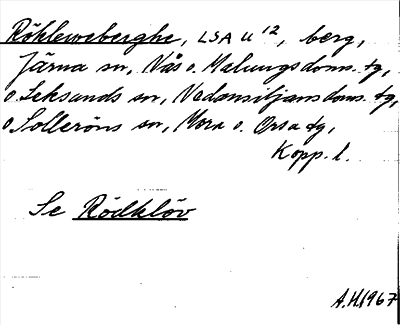 Rökleweberghe, LSA U 12, berg,
Järna sn, Nås o. Malungs doms. tg,
o Leksands sn, Nedansiljans doms. tg,
o Solleröns sn, Mora o. Orsa tg,
Kopp. l.
Se Rödklöv
A.H.1967